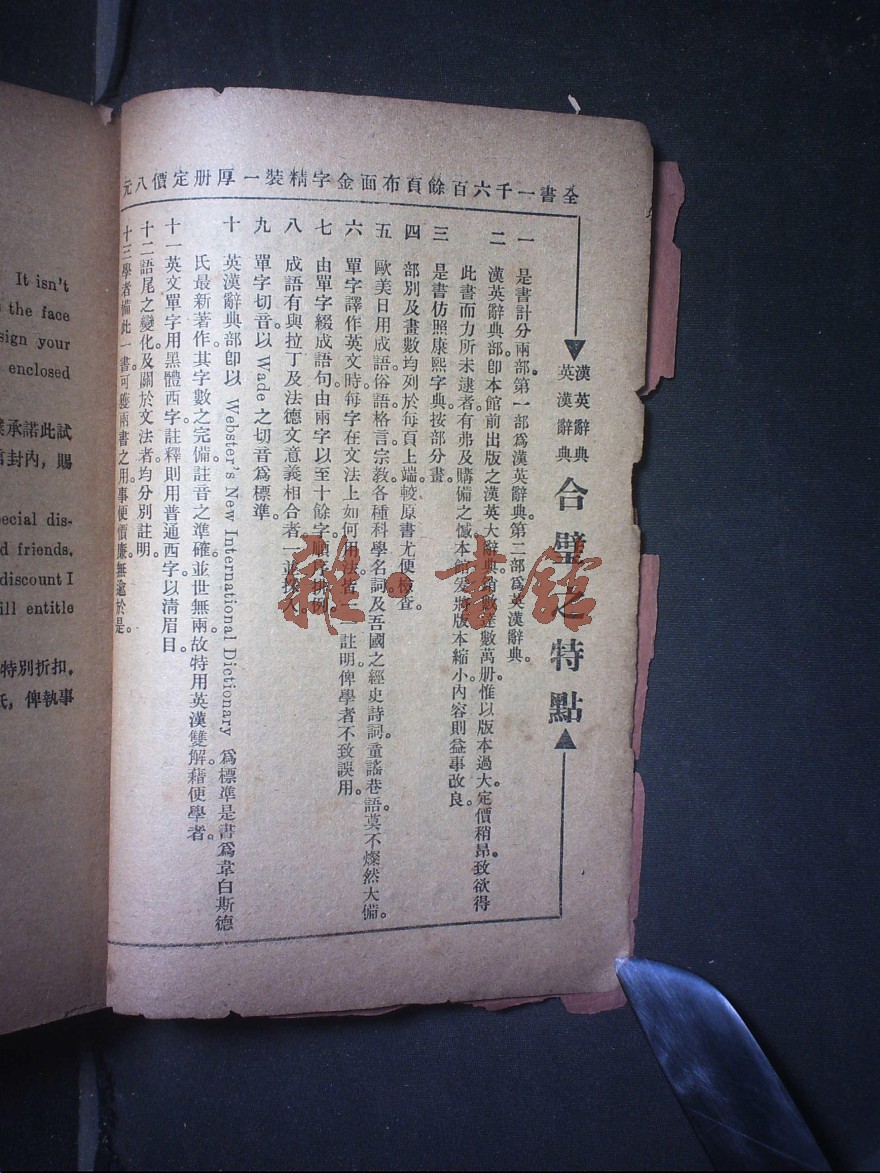 全書一千六百餘頁布面金字精裝一厚册定價八元
漢英辭典
英漢辭典
合璧之特點
一 是書計分兩部。第一部爲漢英辭典。第二部爲英漢辭典。
二 漢英辭典部卽本館前出版之漢英大辭典銷數達數萬册。惟以版本過大。定價稍昂。致欲得
此書而力所未逮者有弗及購備之憾本館爰將版本縮小。內容則益事改良。
三 是書仿照康熙字典。按部分畫。
四 部別及畫數均列於每頁上端。較原書尤便檢查。
五 歐美日用成語。俗語。格言。宗教各種科學名詞及吾國之經史詩詞。童謠巷語。莫不燦然大備。
六 單字譯作英文時。每字在文法上如何用法。皆一一註明。俾學者不致誤用。
七 由單字綴成語句由兩字以至十餘字。順序排例。
八 成語有與拉丁及法德文意義相合者一並採入。
九 單字切音。以 Wade 之切音爲標準。
十 英漢辭典部卽以 Webster's New International Dictionary 爲標準是書爲韋白斯德
氏最新著作。其字數之完備。註音之準確。並世無兩。故特用英漢雙解。藉便學者。
十一 英文單字用黑體西字。註釋則用普通西字以清眉目。
十二 語尾之變化。及關於文法者。均分別註明。
十三 學者備此一書。可獲兩書之用。事便價廉。無逾於是。
It isn't
the face
sign your
enclosed
承諾此試
封內，賜
ecial dis-
d friends.
discount I
ill entitle
特別折扣。
俾執事
雜·書館